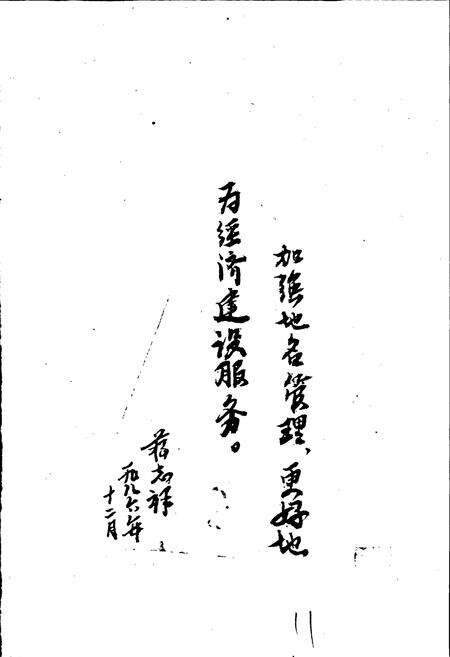 加强地名管理、更好地
为经济建设服务。
蒋志祥
一九八六年
十二月